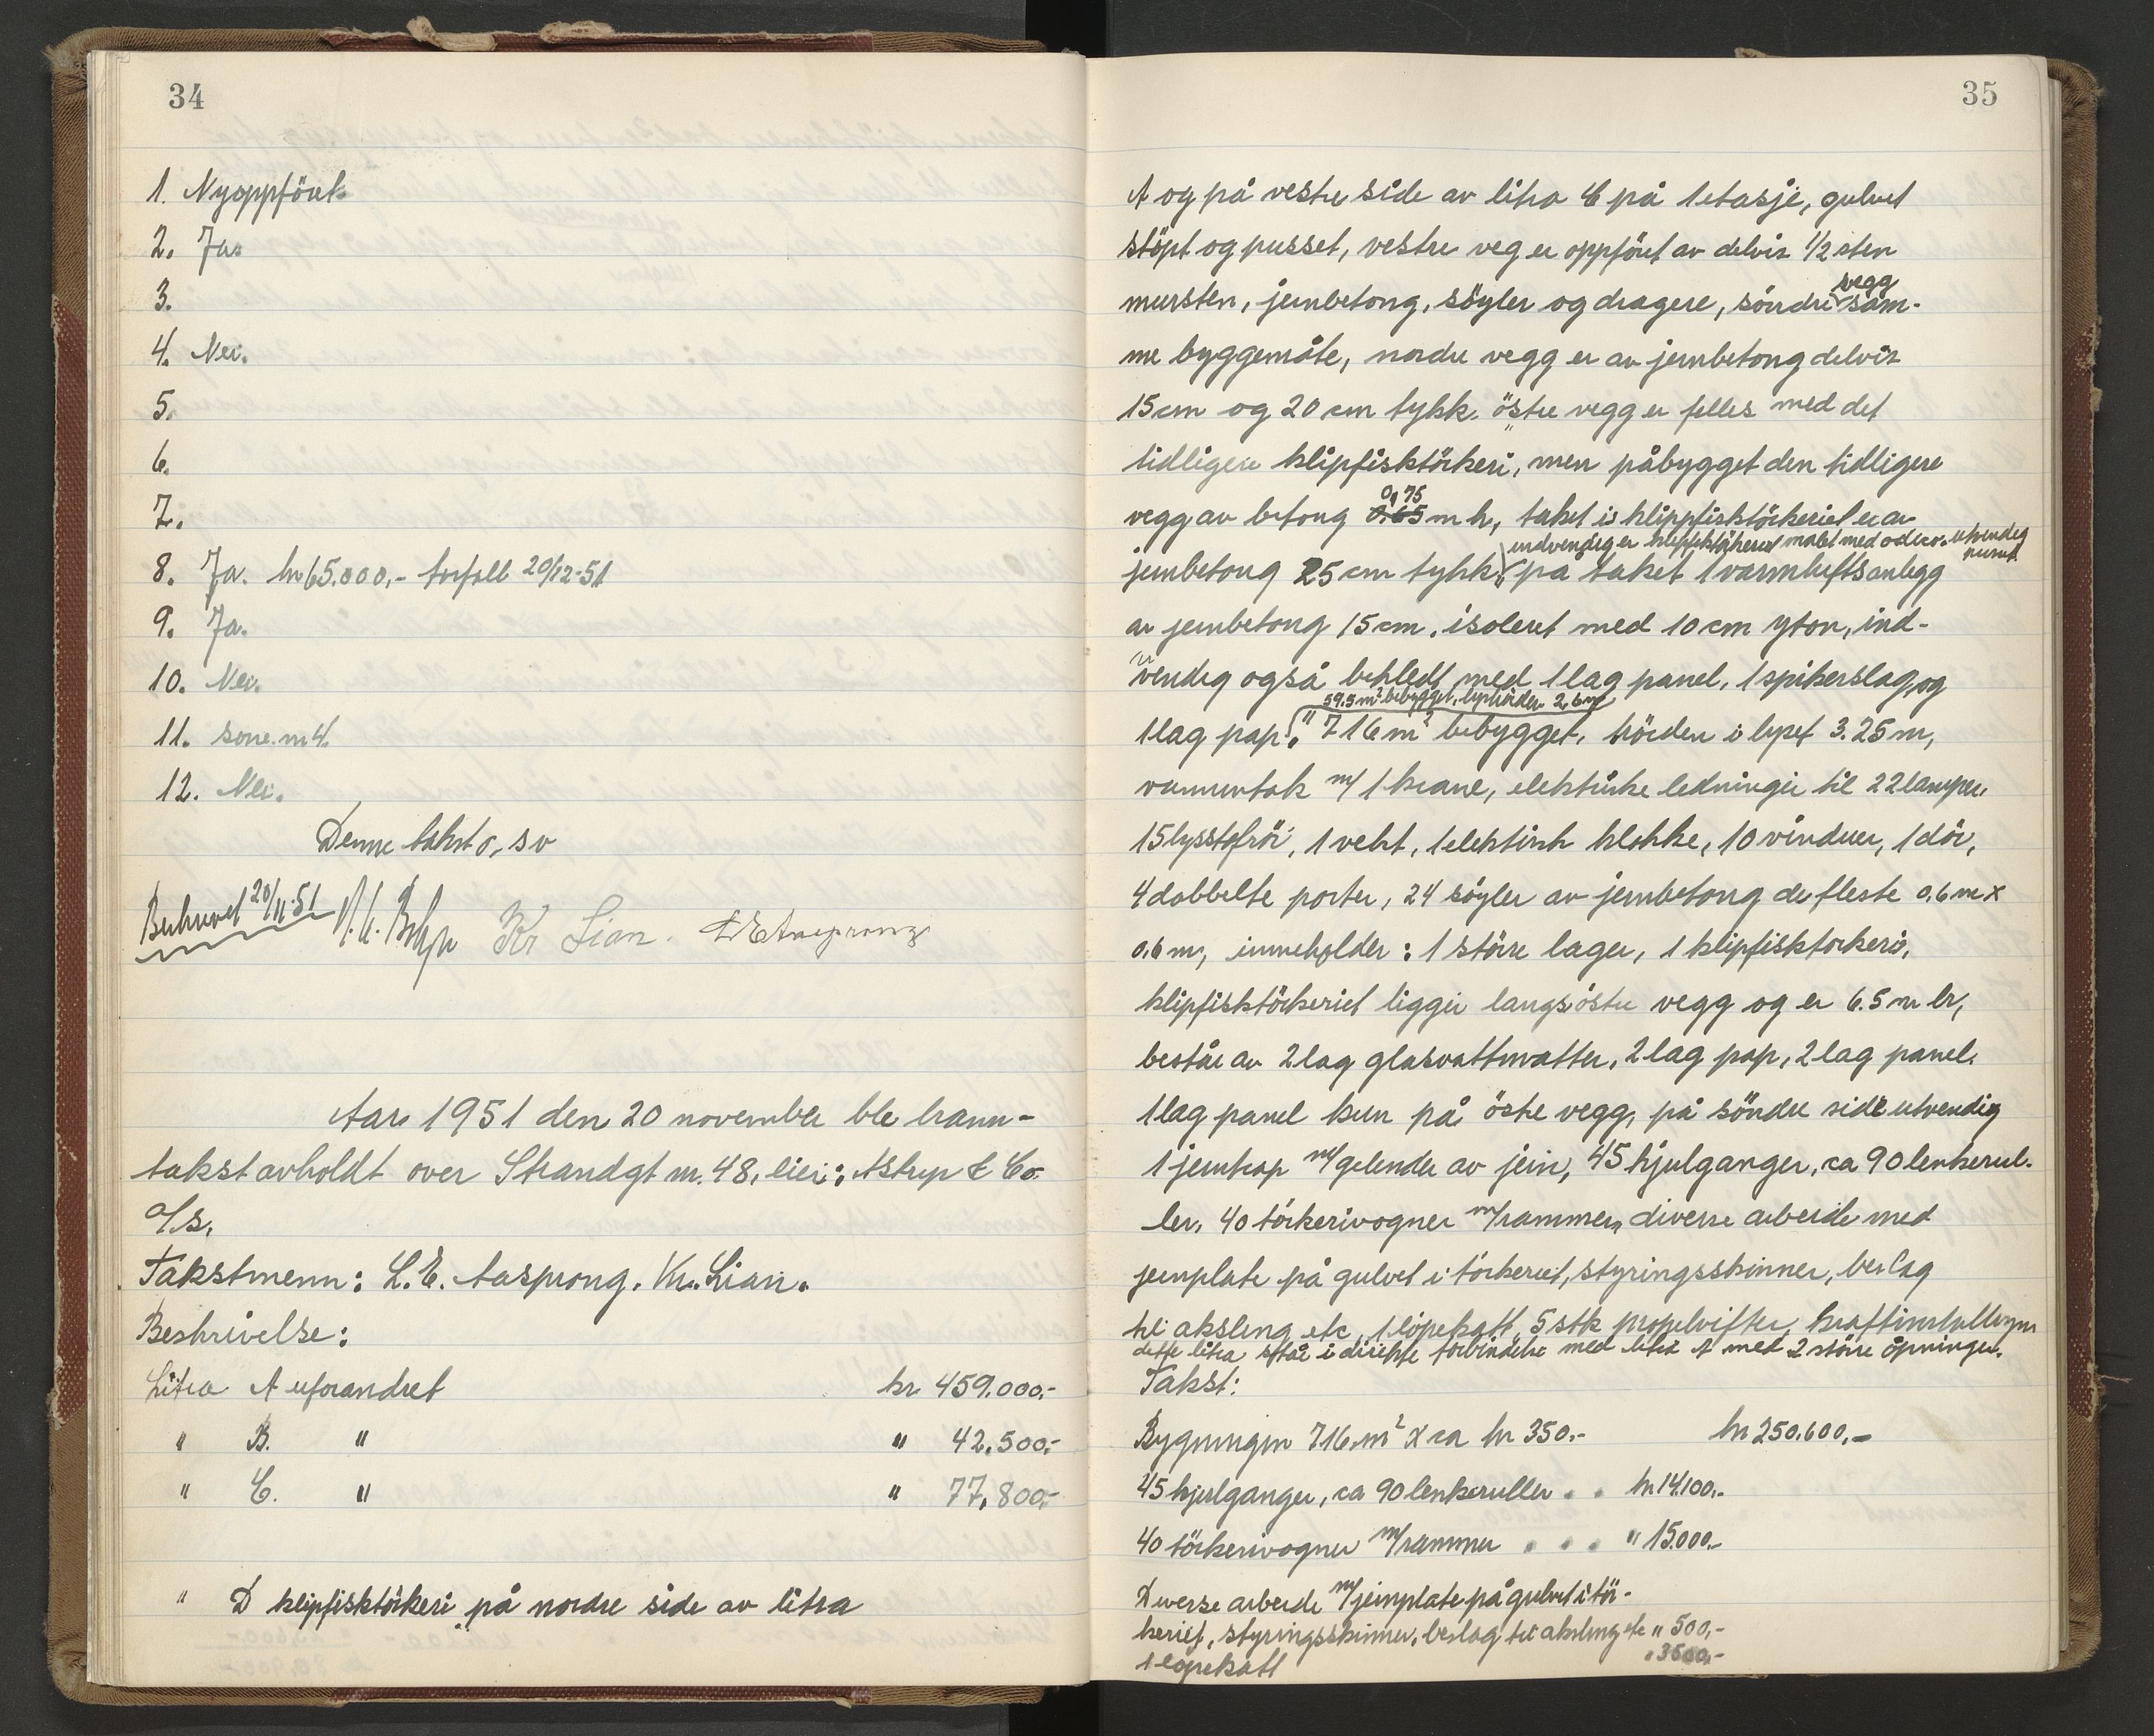 34
1. Nyoppfört.
2. Ja.
3.
4. Nei.
5.
6.
7.
8. Ja. kr 65.000,- forfall 20/12-51
9. Ja.
10. Nei.
11. sone nr 4.
12. Nei.
Denne takst o, sv
Beskrevet 20/11-51 Kr Lian. L E Aasprong
Aar 1951 den 20 november ble brann-
takst avholdt over Strandgt nr. 48, eier: Astrup & Co.
a/s.
Takstmenn: L. E. Aasprong. Kr. Lian.
Beskrivelse:
Litra A uforandret kr 459.000.-
" B. " " 42.500.-
" C. " " 77.800.-
" D klipfisktörkeri på nordre side av litra
35
A og på vestre side av litra C på 1 etasje, gulvet
stöpt og pusset, vestre veg er oppföret av delvis 1/2 sten
mursten, jernbetong, söyler og dragere, söndre vegg sam-
me byggemåte, nordre vegg er av jernbetong delvis
15 cm og 20 cm tykk, östre vegg er felles med det
tidligere klipfisktörkeri, men påbygget den tidligere
vegg av betong 0,65 0,75 m h, taket i klippfisktörkeriet er av
indvendig er klipfisktörkeriet malet med utvendig pusset
jernbetong 25 cm tykk, på taket 1 varmluftsanlegg
av jernbetong 15 cm, isoleret med 10 cm yton, ind-
vendig også bekledt med 1 lag panel, 1 spikerslag og
59.5 m² bebygget, höiden 2,6 m
1 lag pap. 716 m² bebygget, höiden i 3.25 m,
vannuntak m/ 1 krane, elektriske ledninger til 22 lamper,
15 lysstofrör, 1 vekt, 1 elektrisk klokke, 10 vinduer, 1 dör,
4 dobbelte porter, 24 söyler av jernbetong de fleste 0.6 m x
0.6 m, inneholder: 1 större lager, 1 klipfisktorkeri,
klipfisktörkeriet ligger langs östre vegg og er 6.5 m br,
består av 2 lag glasvattmatter, 2 lag pap, 2 lag panel.
1 lag panel kun på östre vegg, på söndre side utvendig
1 jerntrap m/ gelender av jern, 45 hjulganger, ca 90 lenkerul-
ler, 40 törkerivogner m/rammer, diverse arbeide med
jernplate på gulvet i törkeriet, styringsskinner, beslag
til aksling etc, 1 löpekatt, 5 stk propelvifter, kraftinstallasjon
dette litra står i direkte forbindelse med litra A med 2 större åpninger.
Takst:
Bygningen 716 m² x ca kr 350.- kr 250.600,-
45 hjulganger, ca 90 lenkeruller . . kr 14.100.-
40 törkerivogner m/rammer . . . " 15.000.-
Diverse arbeide m/jernplate på gulvet i tör-
keriet, styringsskinner, beslag til aksling etc " 500,-
1 löpekatt " 3500,-